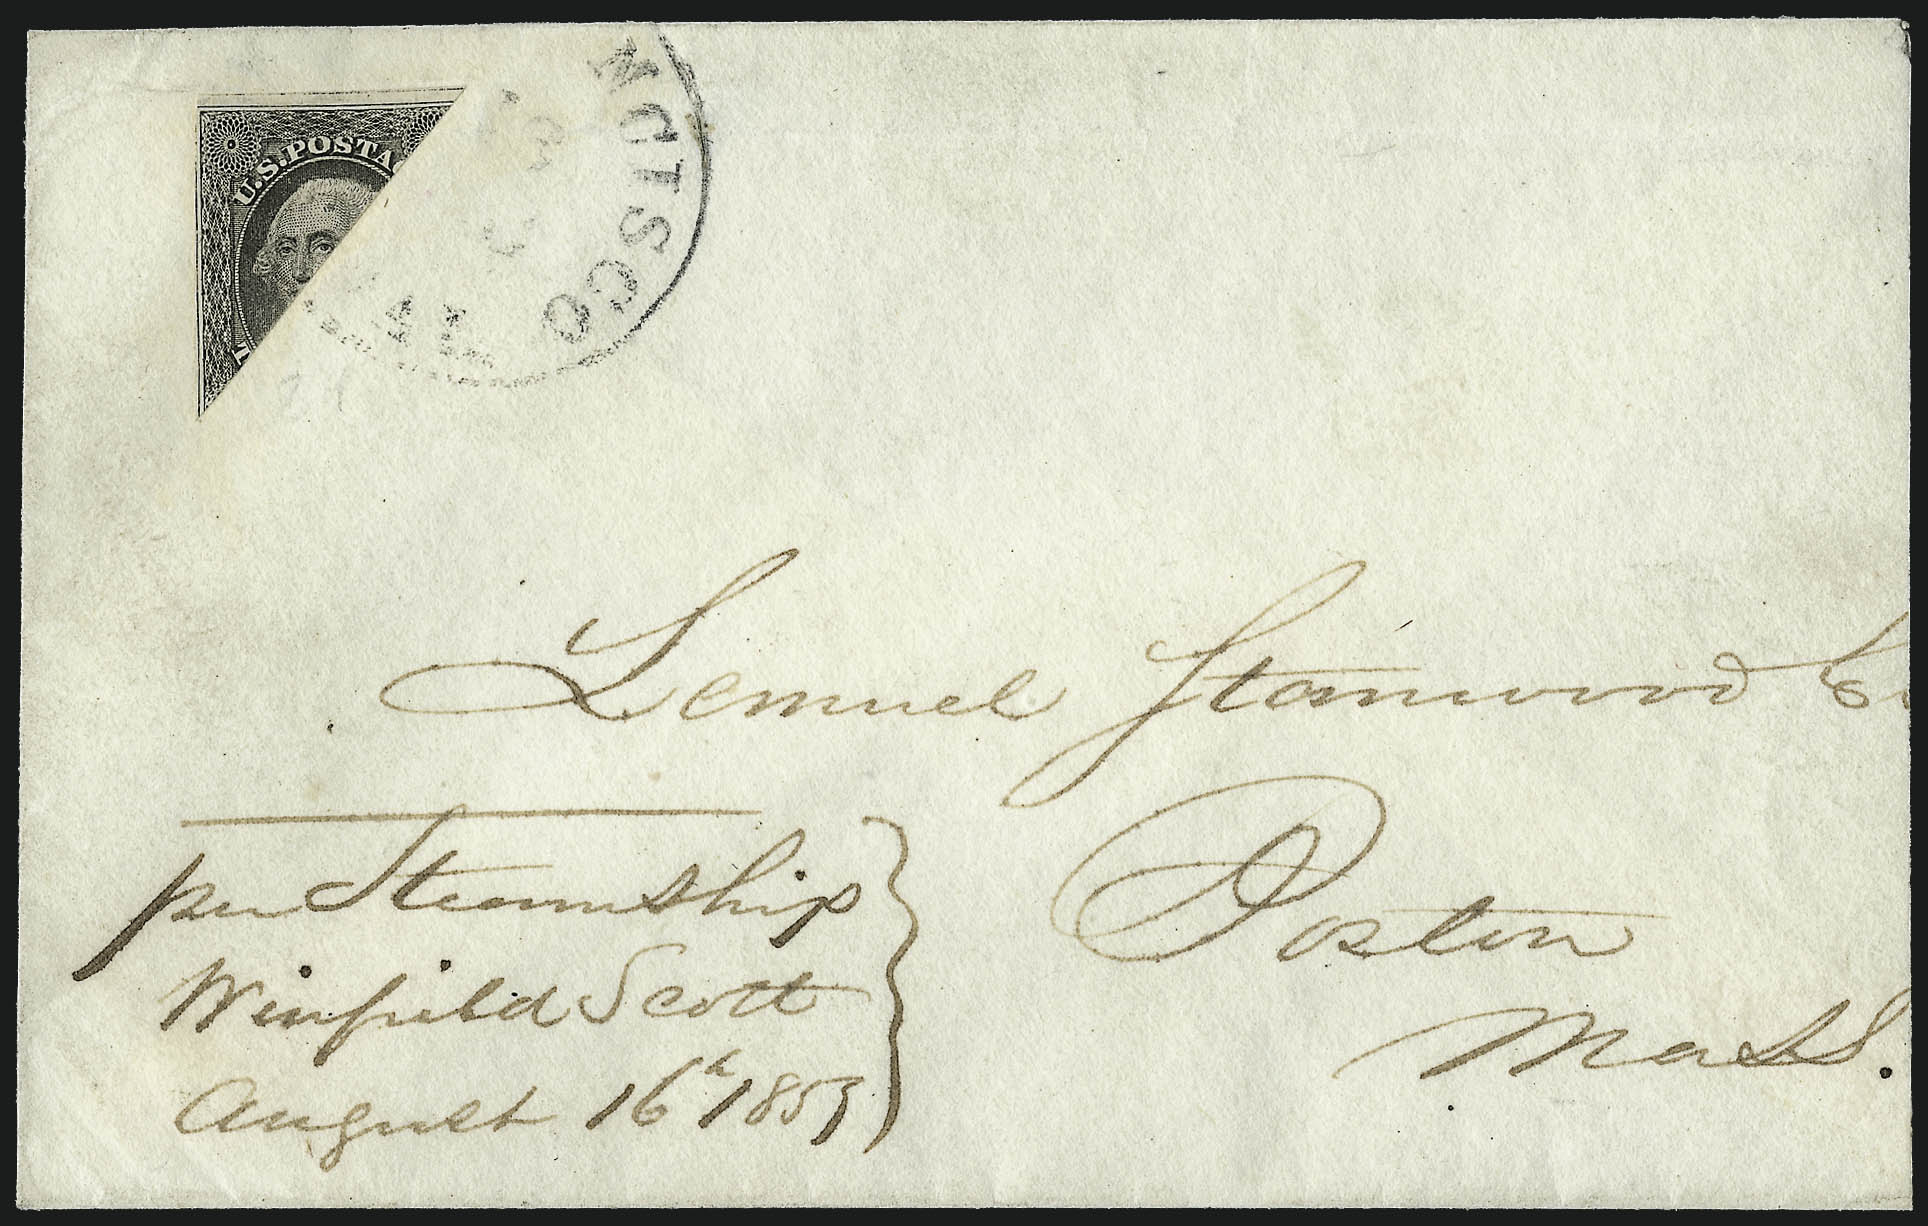 U.S. POSTA
NCISCO
CAL
Lemuel Stanwood
Boston
Mass.
per Steamship
Winfield Scott
August 16th 1853